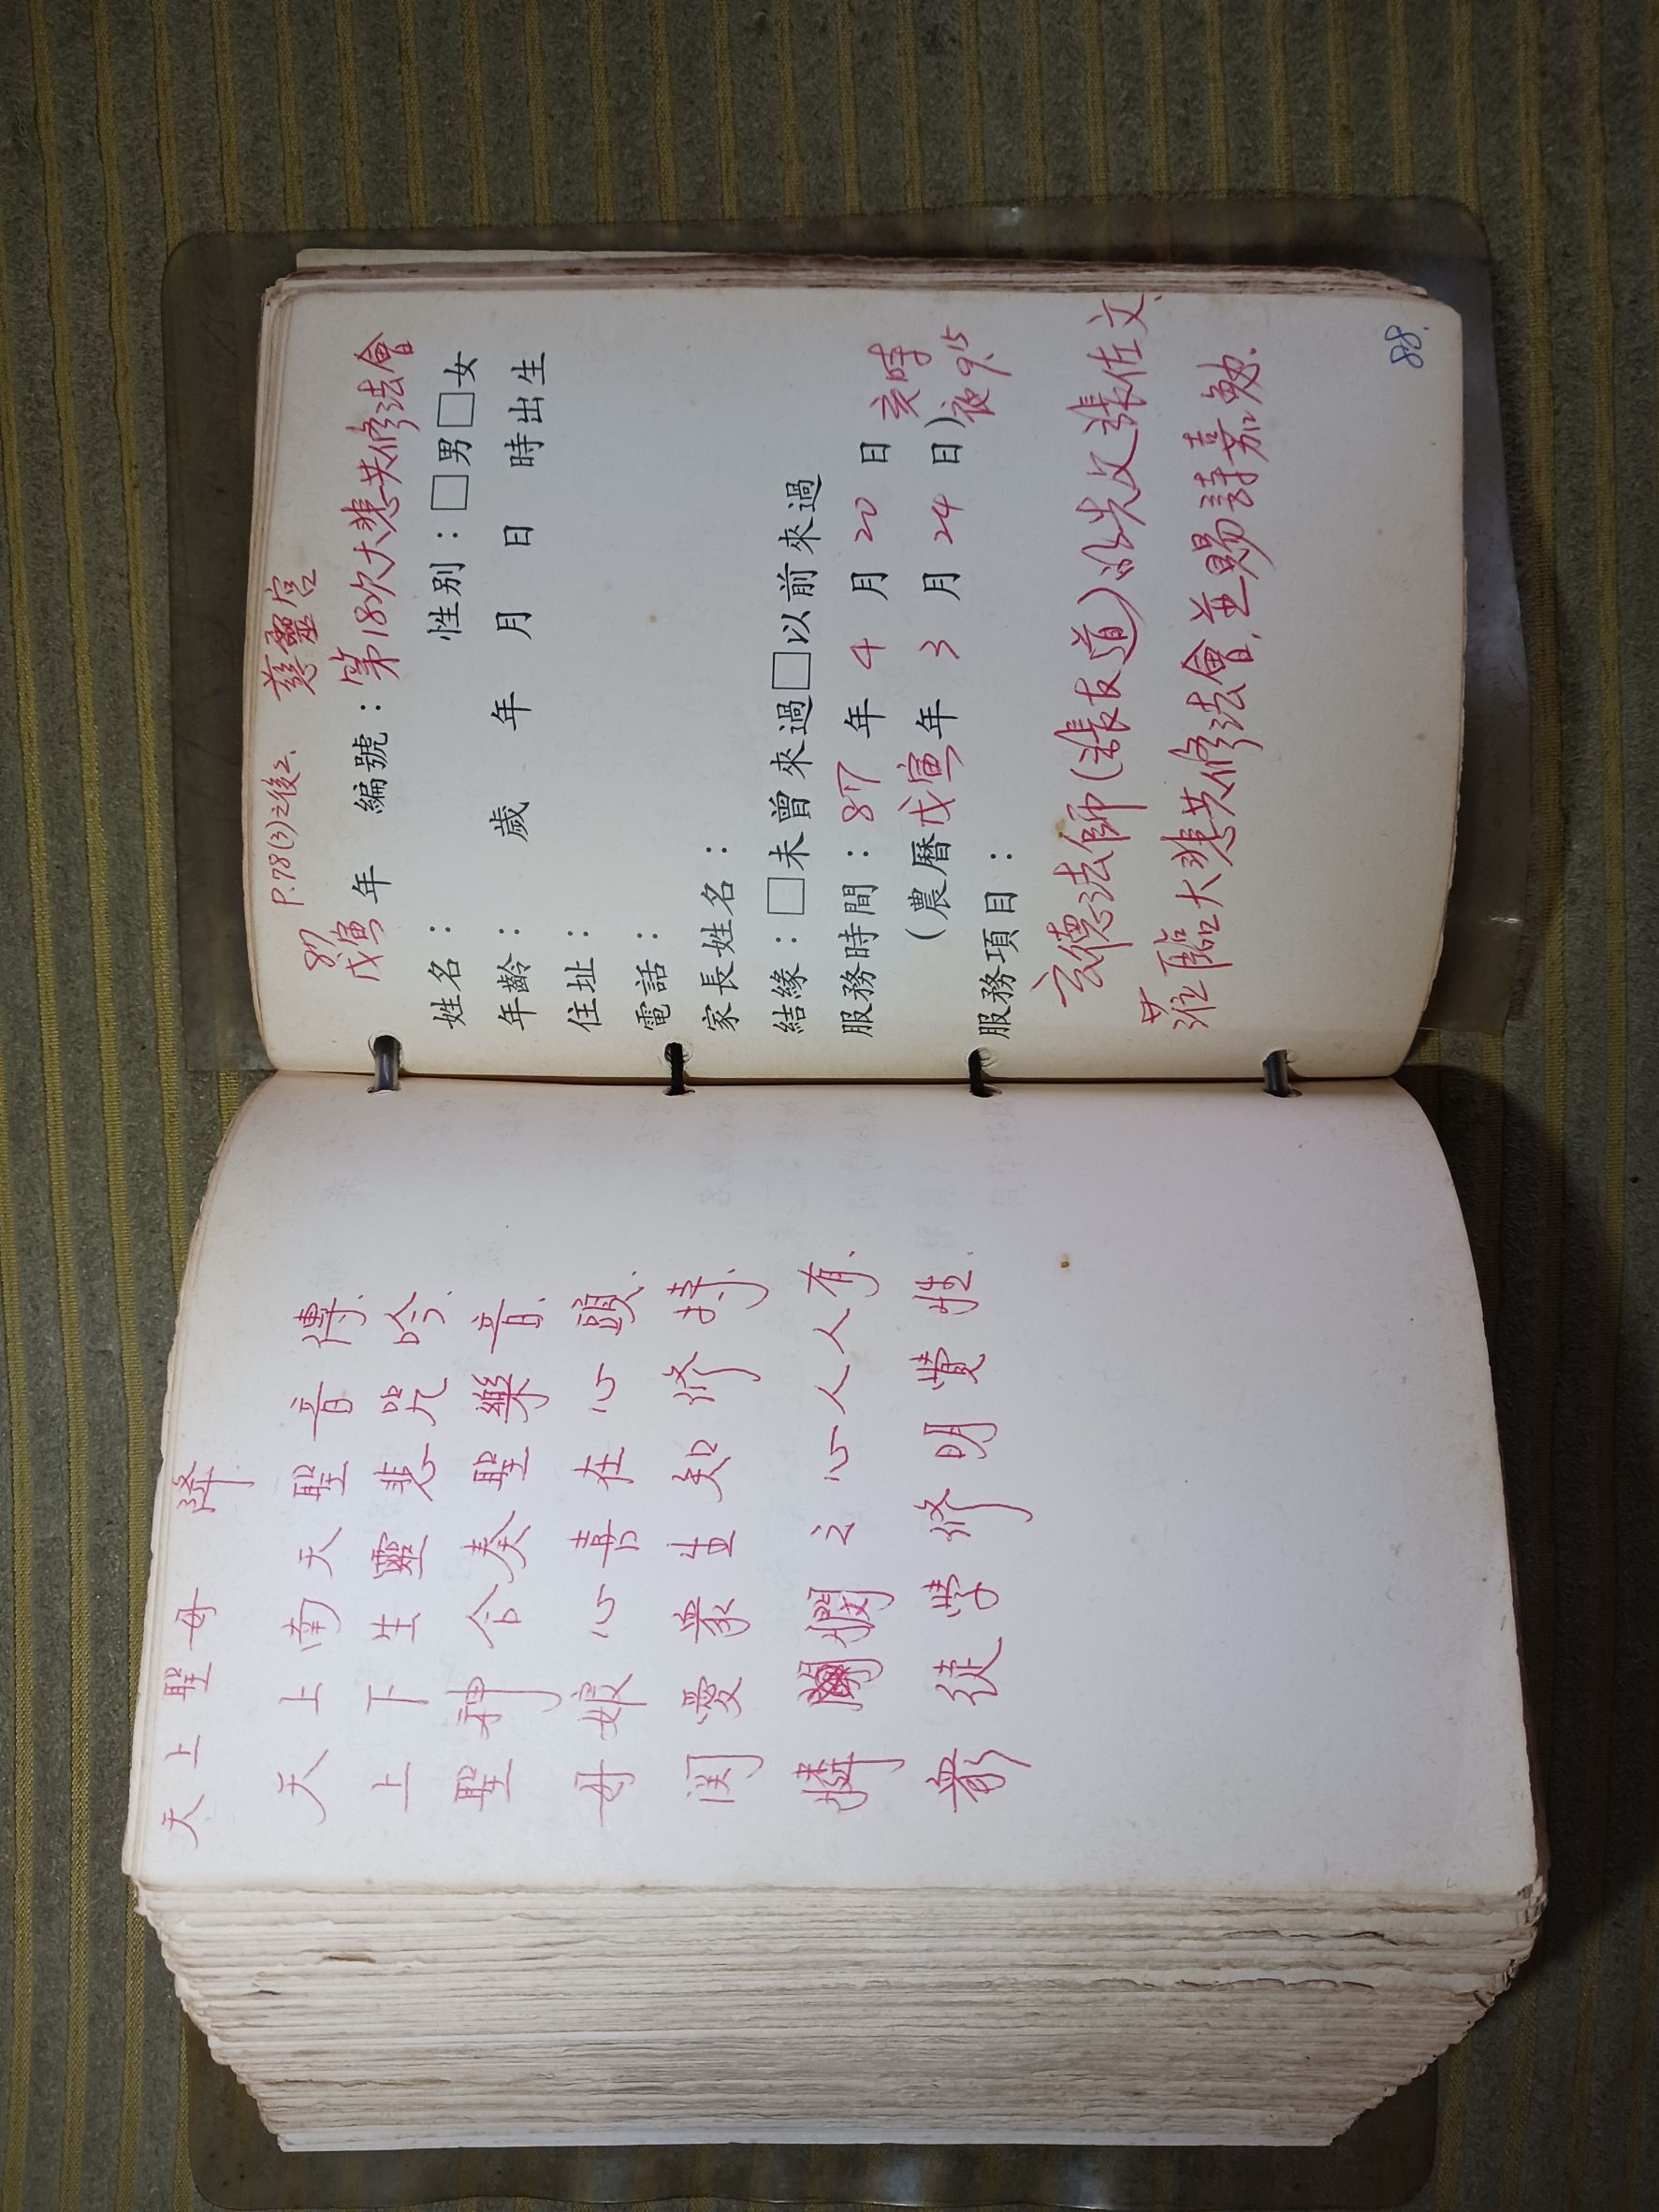 天上聖母 降
天上南天聖音傳.
上下生靈悲咒吟.
聖神合奏聖樂音.
母娘心善在心頭.
関愛眾生知修持.
憐憫之心人人有.
眾徒学修明賞性.
P.78(3)之後2. 慈靈宮
87
戊寅年 編號：第18次大悲共修法會
姓名： 性別：□男□女
年齡： 歲 年 月 日 時出生
住址：
電話：
家長姓名：
結緣：□未曾來過□以前來過
服務時間：87年4月20日 亥時
(農曆戊寅年3月24日) 夜9.15
服務項目：
玄德法師(張友道)的先父張佐文.
蒞臨大悲共修法會,並賜詩嘉勉.
88.